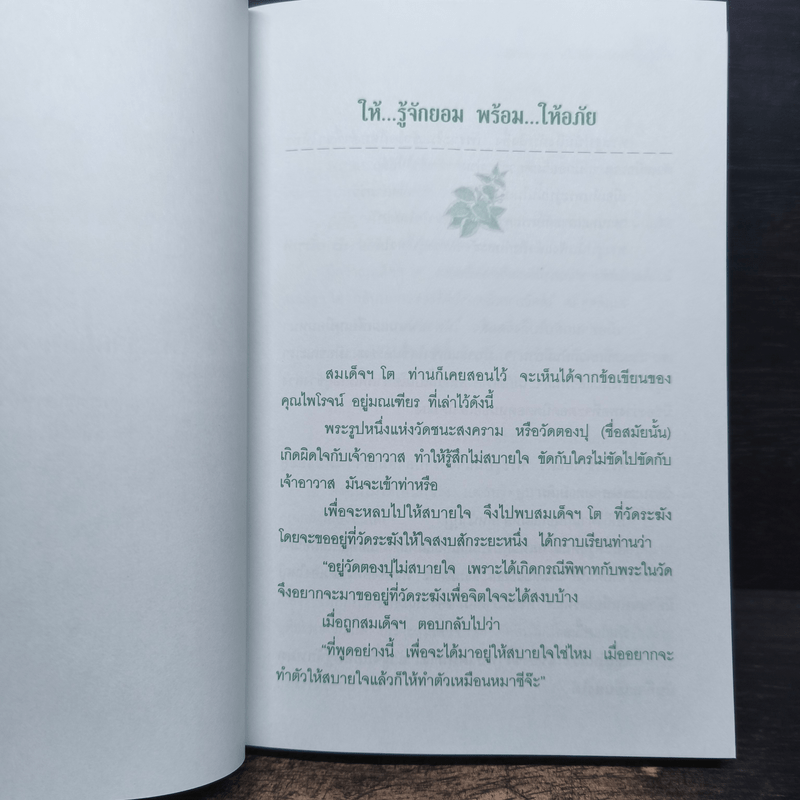 ให้...รู้จักยอม พร้อม...ให้อภัย
สมเด็จฯ โต ท่านก็เคยสอนไว้ จะเห็นได้จากข้อเขียนของ
คุณไพโรจน์ อยู่มณเฑียร ที่เล่าไว้ดังนี้
พระรูปหนึ่งแห่งวัดชนะสงคราม หรือวัดตองปุ (ชื่อสมัยนั้น)
เกิดผิดใจกับเจ้าอาวาส ทำให้รู้สึกไม่สบายใจ ขัดกับใครไม่ขัดไปขัดกับ
เจ้าอาวาส มันจะเข้าท่าหรือ
เพื่อจะหลบไปให้สบายใจ จึงไปพบสมเด็จฯ โต ที่วัดระฆัง
โดยจะขออยู่ที่วัดระฆังให้ใจสงบสักระยะหนึ่ง ได้กราบเรียนท่านว่า
"อยู่วัดตองปุไม่สบายใจ เพราะได้เกิดกรณีพิพาทกับพระในวัด
จึงอยากจะมาขออยู่ที่วัดระฆังเพื่อจิตใจจะได้สงบบ้าง
เมื่อถูกสมเด็จฯ ตอบกลับไปว่า
"ที่พูดอย่างนี้ เพื่อจะได้มาอยู่ให้สบายใจใช่ไหม เมื่ออยากจะ
ทำตัวให้สบายใจแล้วก็ให้ทำตัวเหมือนหมาซีจ๊ะ"